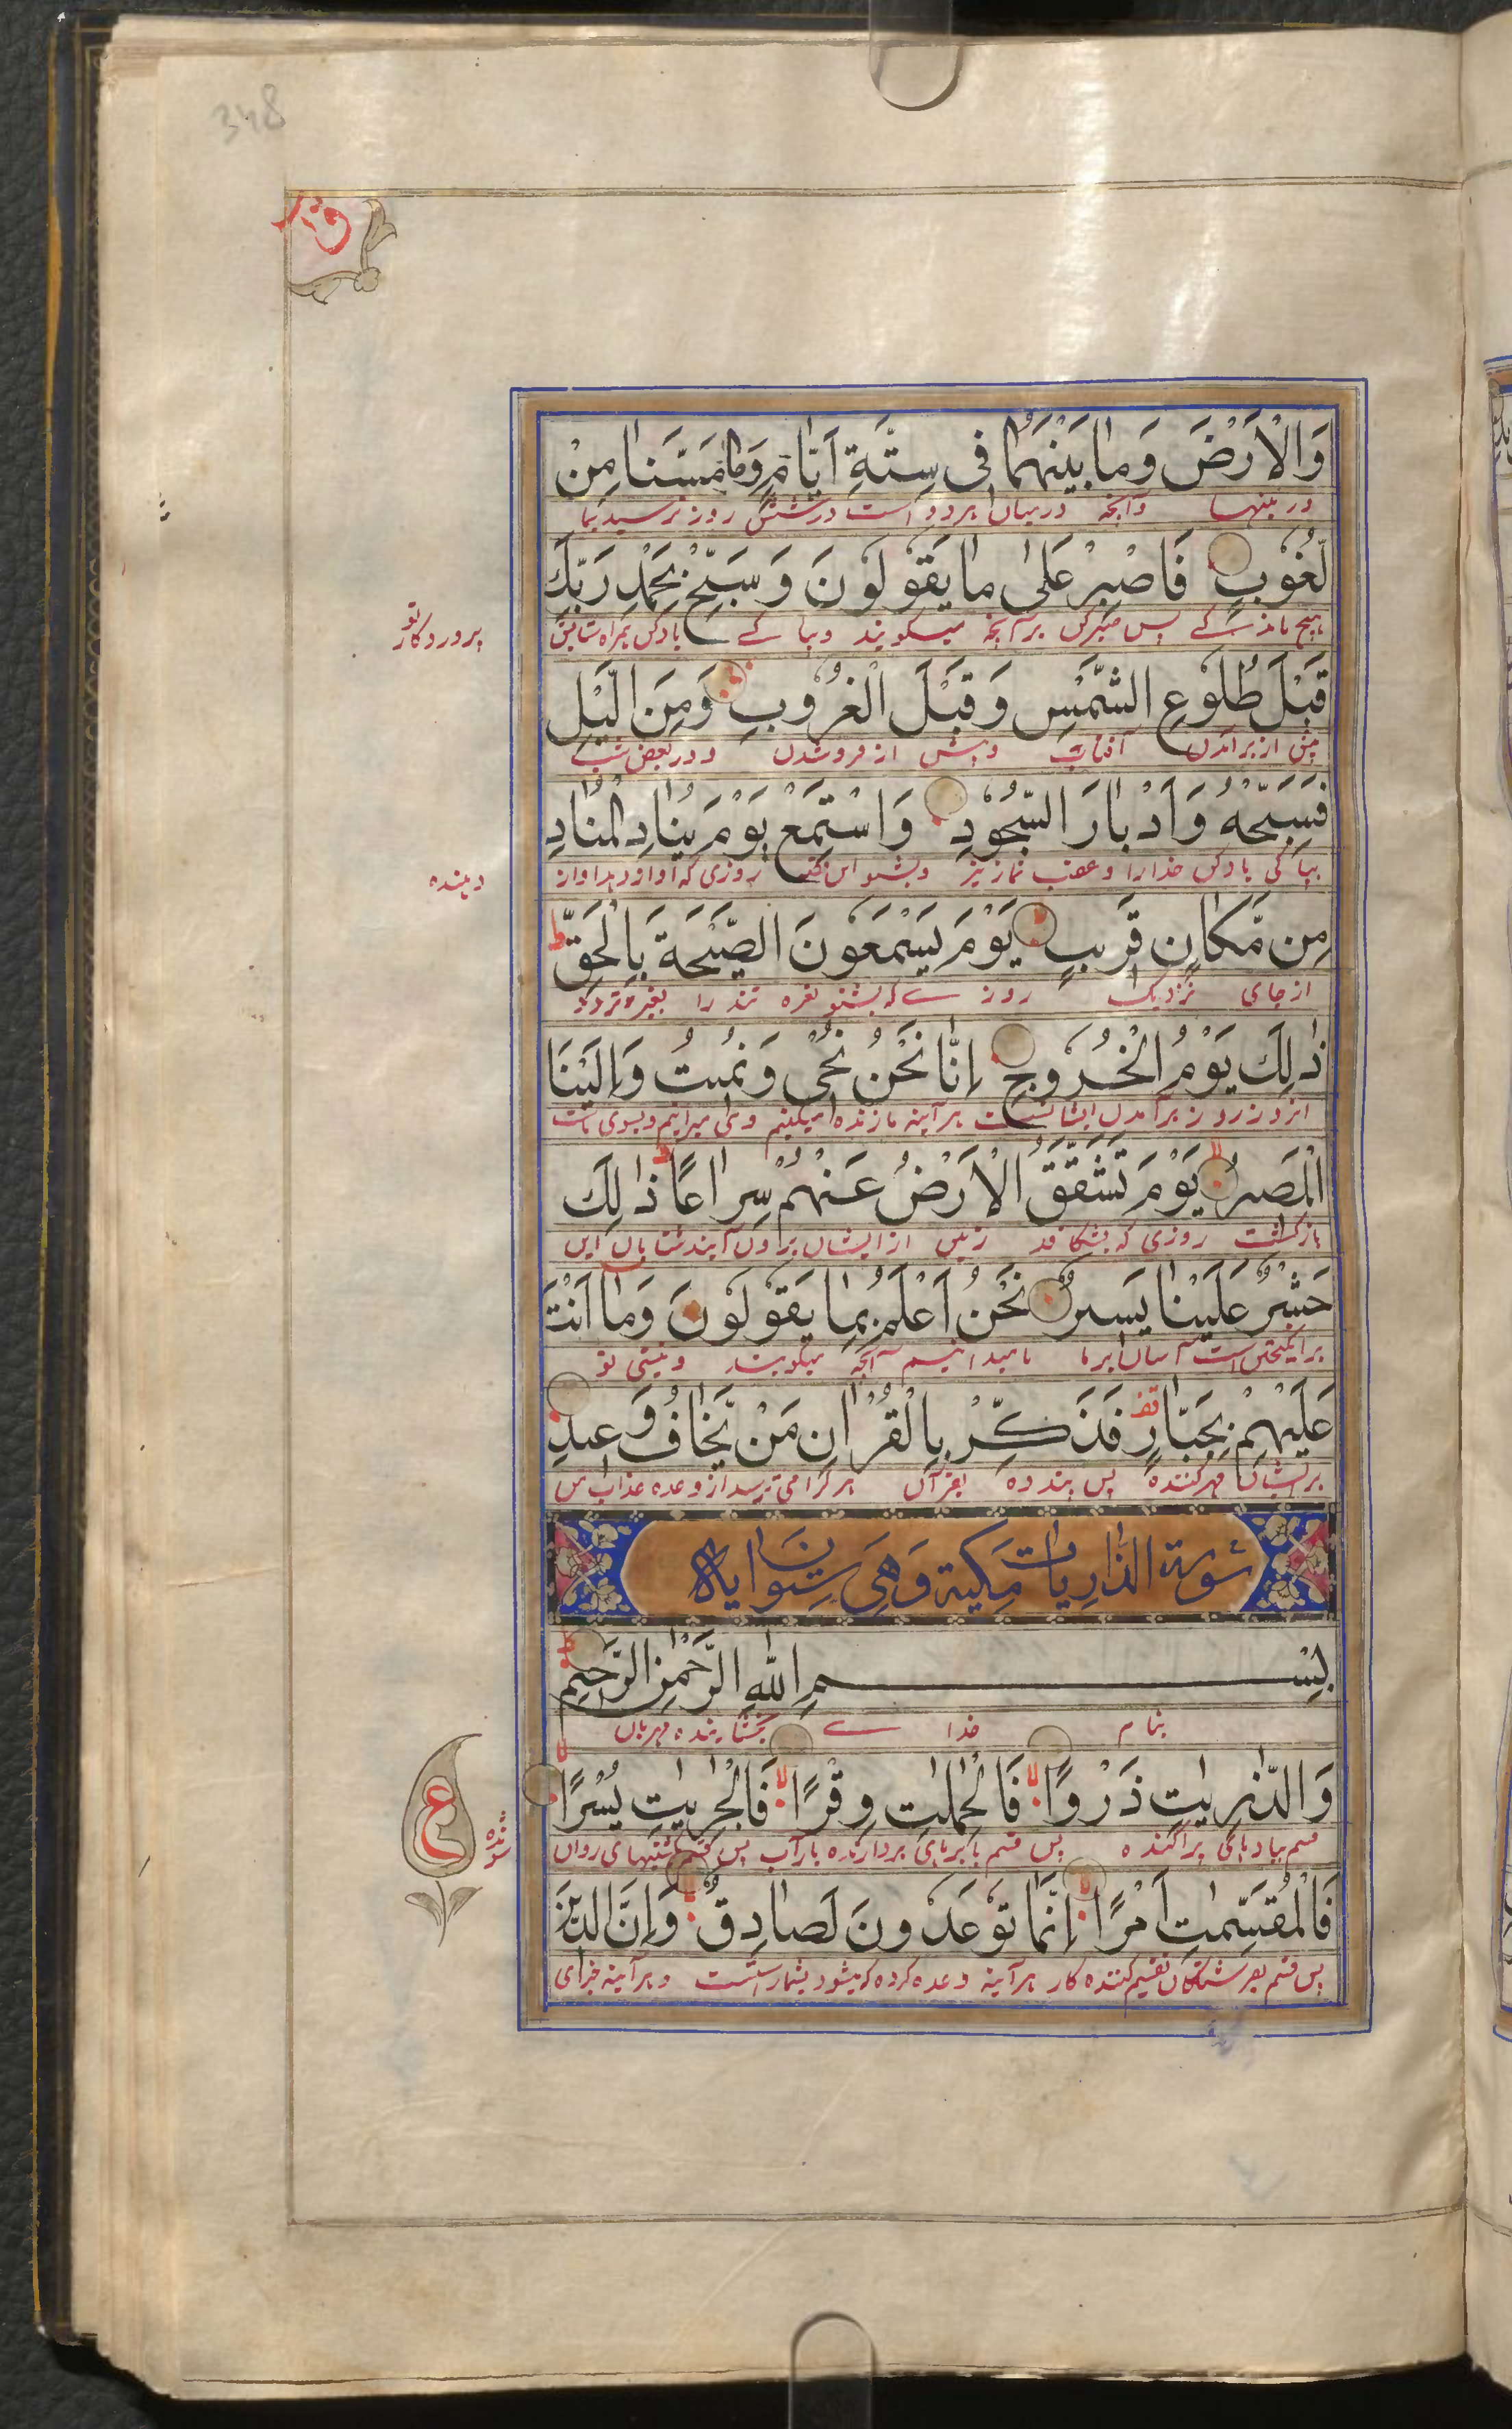 348
ق
وَالْاَرْضَ وَمَا بَيْنَهُمَا فِی سِتَّةِ اَيَّامٍ وَمَا مَسَّنَا مِنْ
در زمینها وآنچه درمیان هردو است در شش روز نرسید بما
لُّغُوبٍ فَاصْبِرْ عَلٰی مَا يَقُولُونَ وَسَبِّحْ بِحَمْدِ رَبِّكَ
هیچ ماندگے پس صبرکن برآنچه میگویند وبپاکے یادکن همراه ستایش
پروردگار تو
قَبْلَ طُلُوعِ الشَّمْسِ وَقَبْلَ الْغُرُوبِ وَمِنَ الَّيْلِ
پیش از برآمدن آفتاب وپیش از فروشدن ودر بعض شب
فَسَبِّحْهُ وَاَدْبَارَ السُّجُودِ وَاسْتَمِعْ يَوْمَ يُنَادِ الْمُنَادِ
بپاکی یادکن خدارا وعقب نماز نیز وبشنو این قصه روزی که آواز دهد آواز
دهنده
مِن مَّكَانٍ قَرِيبٍ يَوْمَ يَسْمَعُونَ الصَّيْحَةَ بِالْحَقِّ ط
از جای نزدیک روزے که بشنو نعره تند را بغیر تردد
ذٰلِكَ يَوْمُ الْخُرُوجِ اِنَّا نَحْنُ نُحْیٖ وَنُمِيتُ وَاِلَيْنَا
آنروز روز برآمدن ایشانست هرآینه ما زنده میکنیم ومی میرانیم وبسوی ماست
الْمَصِيرُ يَوْمَ تَشَقَّقُ الْاَرْضُ عَنْهُمْ سِرَاعًا ط ذٰلِكَ
بازگشت روزی که بشگافد زمین از ایشان برون آیند شتابان این
حَشْرٌ عَلَيْنَا يَسِيرٌ نَحْنُ اَعْلَمُ بِمَا يَقُولُونَ وَمَا اَنْتَ
برانگیختن است آسان برما ما میدانیم آنچه میگویند ونیستی تو
عَلَيْهِمْ بِجَبَّارٍ قف فَذَكِّرْ بِالْقُرْاٰنِ مَنْ يَّخَافُ وَعِيدِ
برایشان قهرکننده پس پند ده بقرآن هرکرا می ترسد از وعده عذاب من
سُورَة الذّارِيات مَكيّة وَهِیَ سِتّونَ ايَاة
بِسْمِ اللهِ الرَّحْمٰنِ الرَّحِيمِ
بنام خداے بخشاینده مهربان
وَالذّٰرِيٰتِ ذَرْوًا لا فَالْحٰمِلٰتِ وِقْرًا لا فَالْجٰرِيٰتِ يُسْرًا لا
قسم ببادهای پراگنده پس قسم بابرهای بردارنده بار آب پس قسم بکشتیهای روان
شونده
ع
فَالْمُقَسِّمٰتِ اَمْرًا لا اِنَّمَا تُوعَدُونَ لَصَادِقٌ لا وَاِنَّ الدِّينَ
پس قسم بفرشتگان تقسیم کننده کار هرآینه وعده کرده میشود بشما راستست وهرآینه جزای